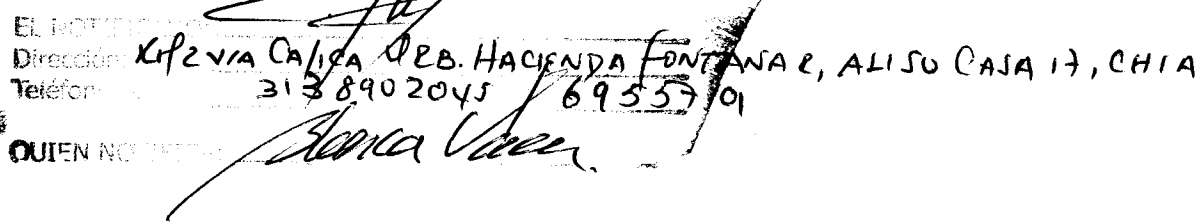 EL NOTIFI
Dirección: K1P2 VIA CAJICA URB. HACIENDA FONTANAR, ALISO CASA 17, CHIA
Teléfon 313 8902045 6955701
QUIEN NO Blanca